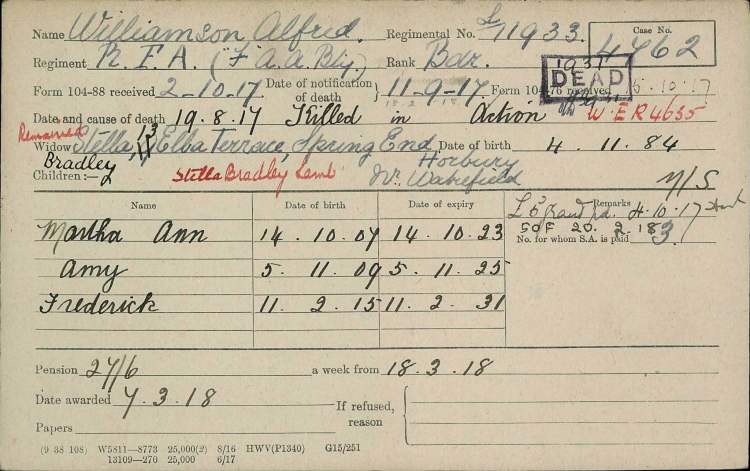 Name Williamson Alfred. Regimental No. L/11933. Case No. 4762
Regiment R.F.A. ("F" A.A. Bty.) Rank Bdr.
Form 104-88 received 2-10-17. Date of notification of death } 11-9-17. Form 104-76 received 5.10.17
1931 DEAD
Date and cause of death 19.8.17 Killed in Action W.E.R 4635
Remarried
Widow Stella, 13 Elba Terrace, Spring End, Date of birth 4.11.84
Bradley Horbury
Children:— 2 Stella Bradley Lamb Nr. Wakefield N/S
Name Date of birth Date of expiry Remarks
£5 grant pd. 4.10.17
SOF 20.2.18
No. for whom S.A. is paid 3
Martha Ann 14.10.07 14.10.23
Amy 5.11.09 5.11.25
Frederick 11.2.15 11.2.31
Pension 27/6 a week from 18.3.18
Date awarded 7.3.18
If refused, reason {
Papers
(9 38 108) W5811—8773 25,000(2) 8/16 HWV(P1340) G15/251
13109—270 25,000 6/17